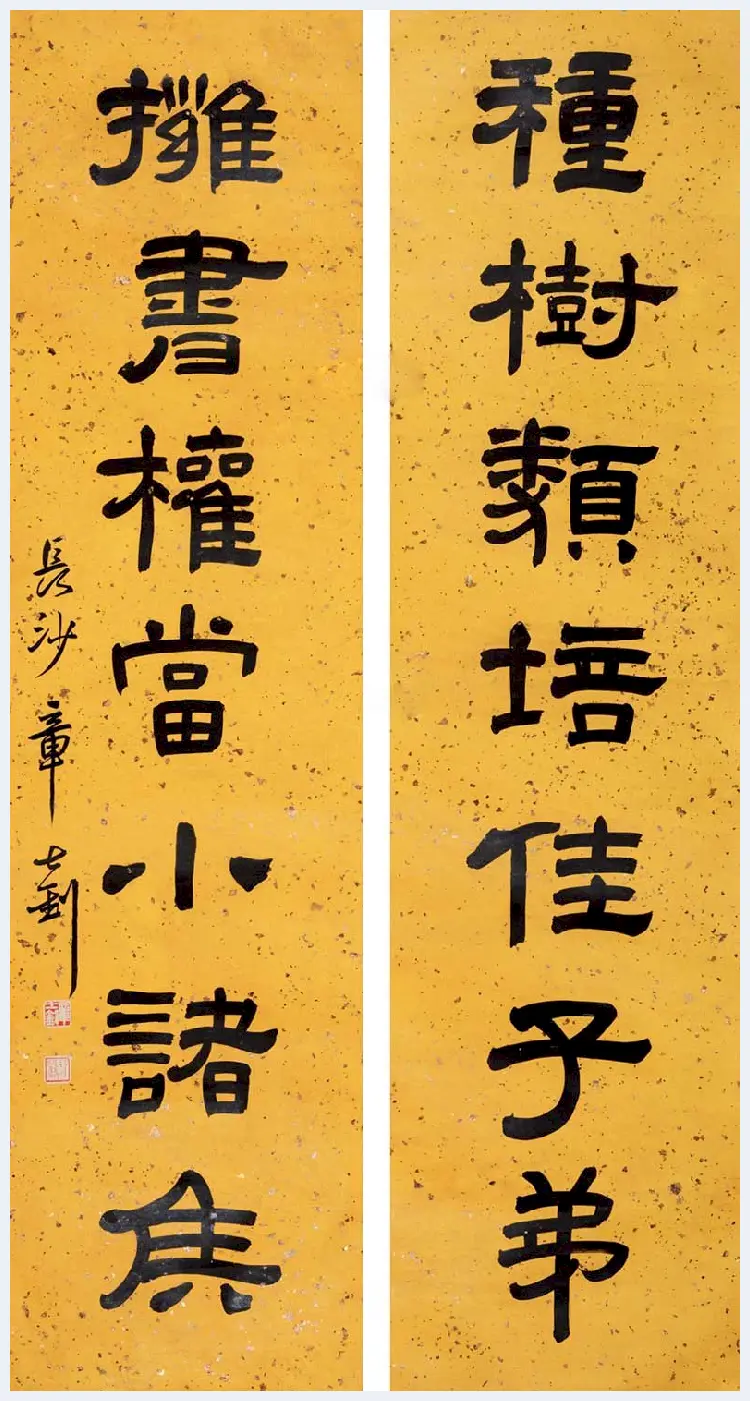 種樹類培佳子弟
擁書權當小諸侯
長沙章士釗